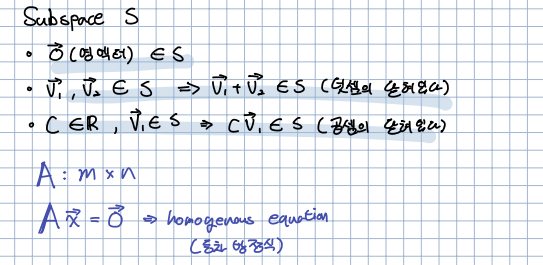 Subspace S
• 0⃗ (영벡터) ∈ S
• V⃗₁, V⃗₂ ∈ S ⇒ V⃗₁ + V⃗₂ ∈ S (덧셈의 닫혀있다)
• C ∈ ℝ, V⃗₁ ∈ S ⇒ C V⃗₁ ∈ S (곱셈의 닫혀있다)
A : m × n
A x⃗ = 0⃗ ⇒ homogenous equation
(동차 방정식)